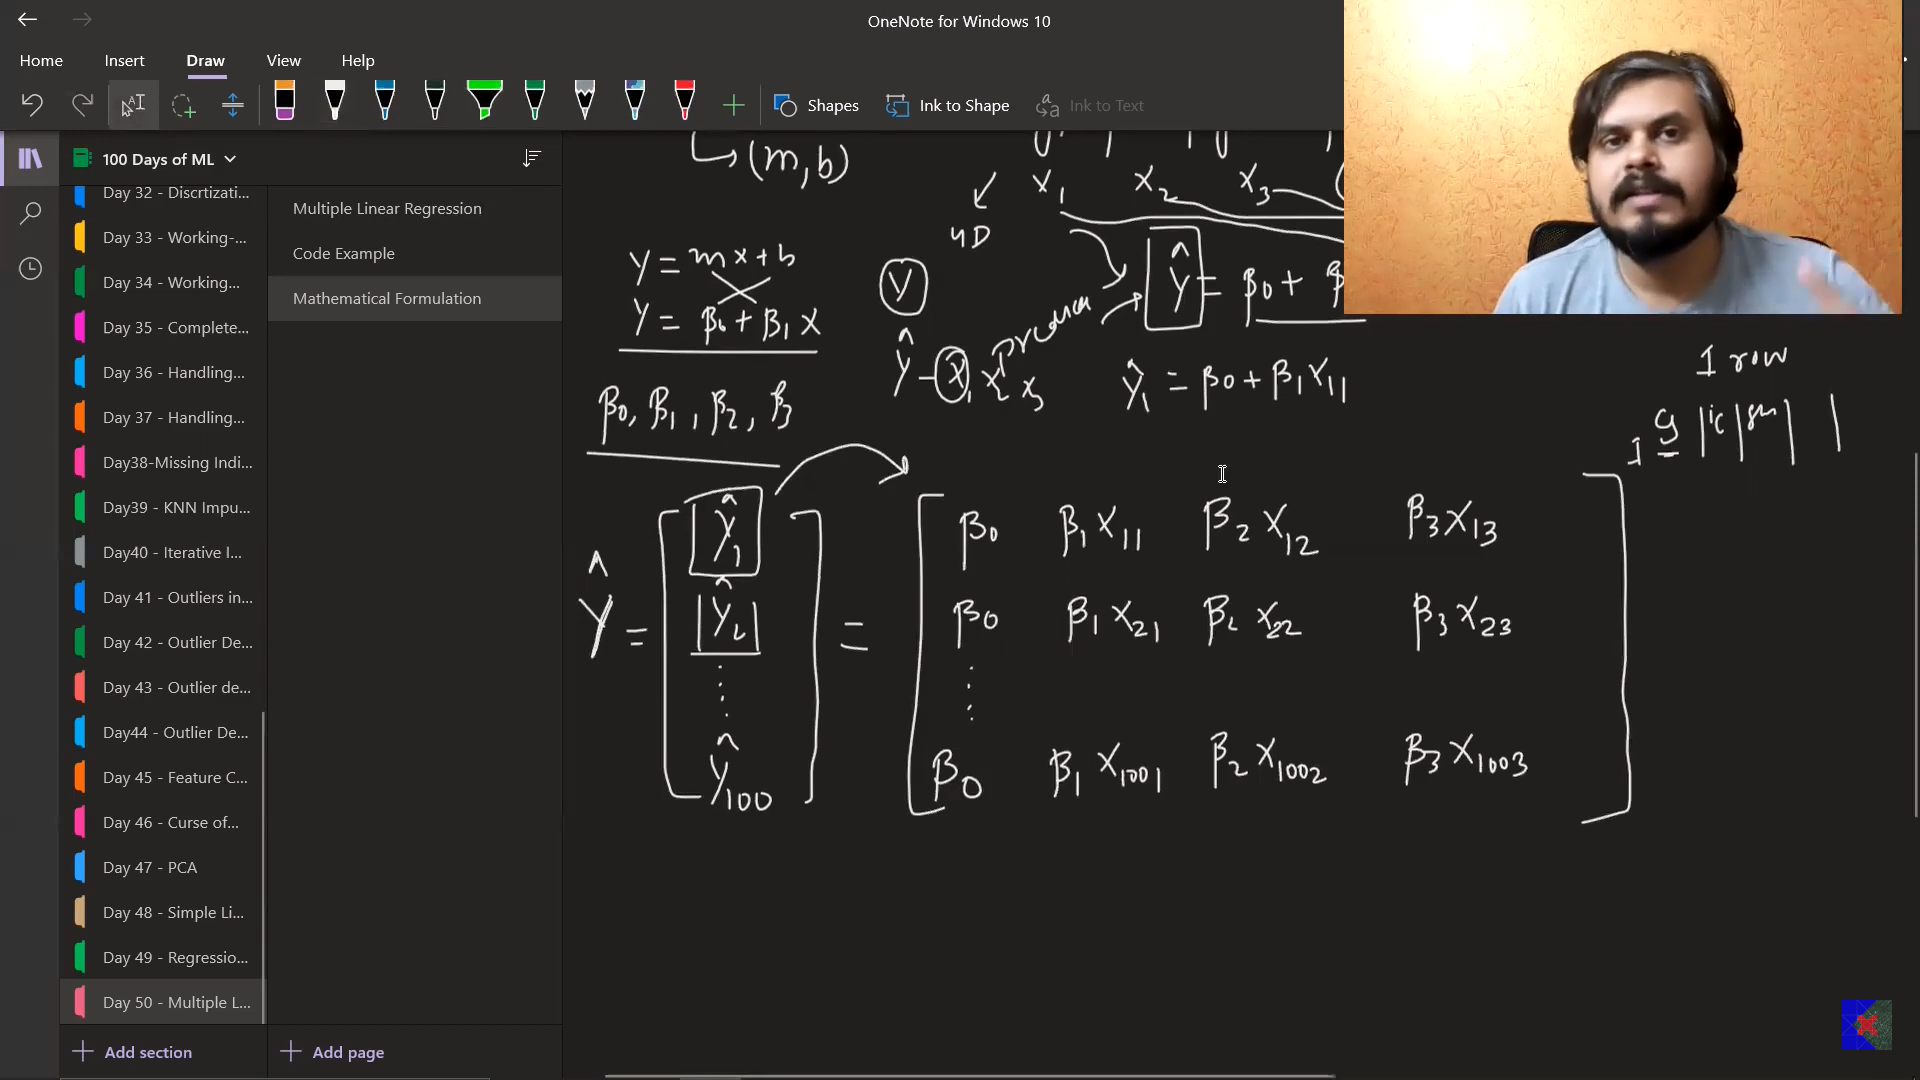 OneNote for Windows 10
Home Insert Draw View Help
Shapes Ink to Shape Ink to Text
100 Days of ML
Day 32 - Discrtizati...
Day 33 - Working-...
Day 34 - Working...
Day 35 - Complete...
Day 36 - Handling...
Day 37 - Handling...
Day38-Missing Indi...
Day39 - KNN Impu...
Day40 - Iterative I...
Day 41 - Outliers in...
Day 42 - Outlier De...
Day 43 - Outlier de...
Day44 - Outlier De...
Day 45 - Feature C...
Day 46 - Curse of...
Day 47 - PCA
Day 48 - Simple Li...
Day 49 - Regressio...
Day 50 - Multiple L...
Add section
Multiple Linear Regression
Code Example
Mathematical Formulation
Add page
(m, b)
x1 x2 x3
4D
y = mx + b
Y = β0 + β1 X
β0, β1, β2, β3
Y
Ŷ - X1 X2 X3
Ŷ = β0 +
Ŷ1 = β0 + β1 X11
1 row
Ŷ = Ŷ1 = β0 β1 X11 β2 X12 β3 X13
Ŷ2 β0 β1 X21 β2 X22 β3 X23
Ŷ100 β0 β1 X1001 β2 X1002 β3 X1003